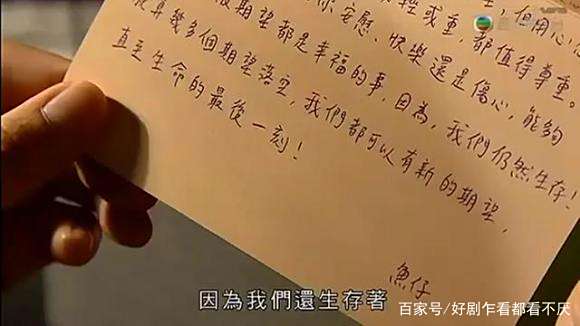 但用心
輕或重,都值得尊重。
你安慰、快樂還是傷心,能夠
期望都是幸福的事,因為,我們仍然生存!
算幾多個期望落空,我們都可以有新的期望,
直至生命的最後一刻!
魚仔
因為我們還生存著
百家号/好剧乍看都看不厌